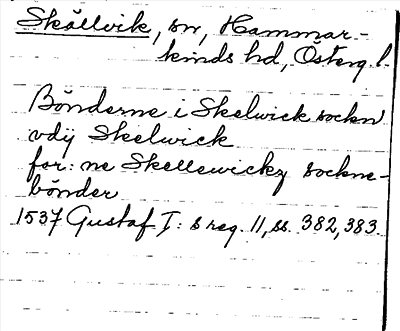 Skällvik, sn, Hammar-
kinds hd, Österg. l.
Bönderne i Skelwick sockn
vdij Skelwick
for: ne Skellewicky sockne-
bönder
1537 Gustaf I: s reg. 11, ss. 382, 383